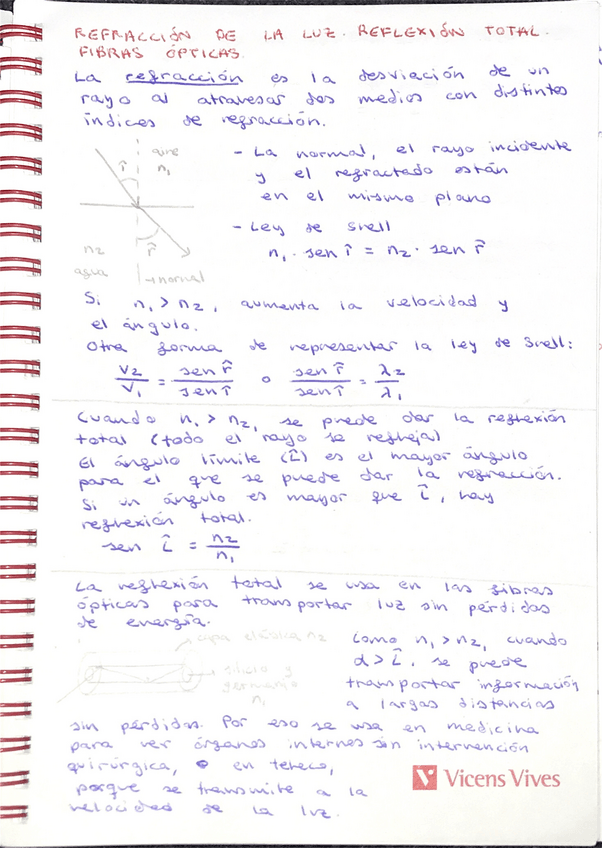 REFRACCIÓN DE LA LUZ. REFLEXIÓN TOTAL.
FIBRAS ÓPTICAS.
La refracción es la desviación de un
rayo al atravesar dos medios con distintos
índices de refracción.
aire
î
n₁
n₂
r̂
agua
→normal
- La normal, el rayo incidente
y el refractado están
en el mismo plano
- Ley de Snell
n₁ · sen î = n₂ · sen r̂
Si n₁ > n₂, aumenta la velocidad y
el ángulo.
Otra forma de representar la ley de Snell:
v₂/v₁ = sen r̂/sen î o sen r̂/sen î = λ₂/λ₁
Cuando n₁ > n₂, se puede dar la reflexión
total (todo el rayo se refleja)
El ángulo límite (L̂) es el mayor ángulo
para el que se puede dar la refracción.
Si un ángulo es mayor que L̂, hay
reflexión total.
sen L̂ = n₂/n₁
La reflexión total se usa en las fibras
ópticas para transportar luz sin pérdidas
de energía.
capa elástica n₂
silicio y
germanio
n₁
Como n₁ > n₂, cuando
α > L̂, se puede
transportar información
a largas distancias
sin pérdidas. Por eso se usa en medicina
para ver órganos internos sin intervención
quirúrgica, o en teleco,
porque se transmite a la
velocidad de la luz.
Vicens Vives